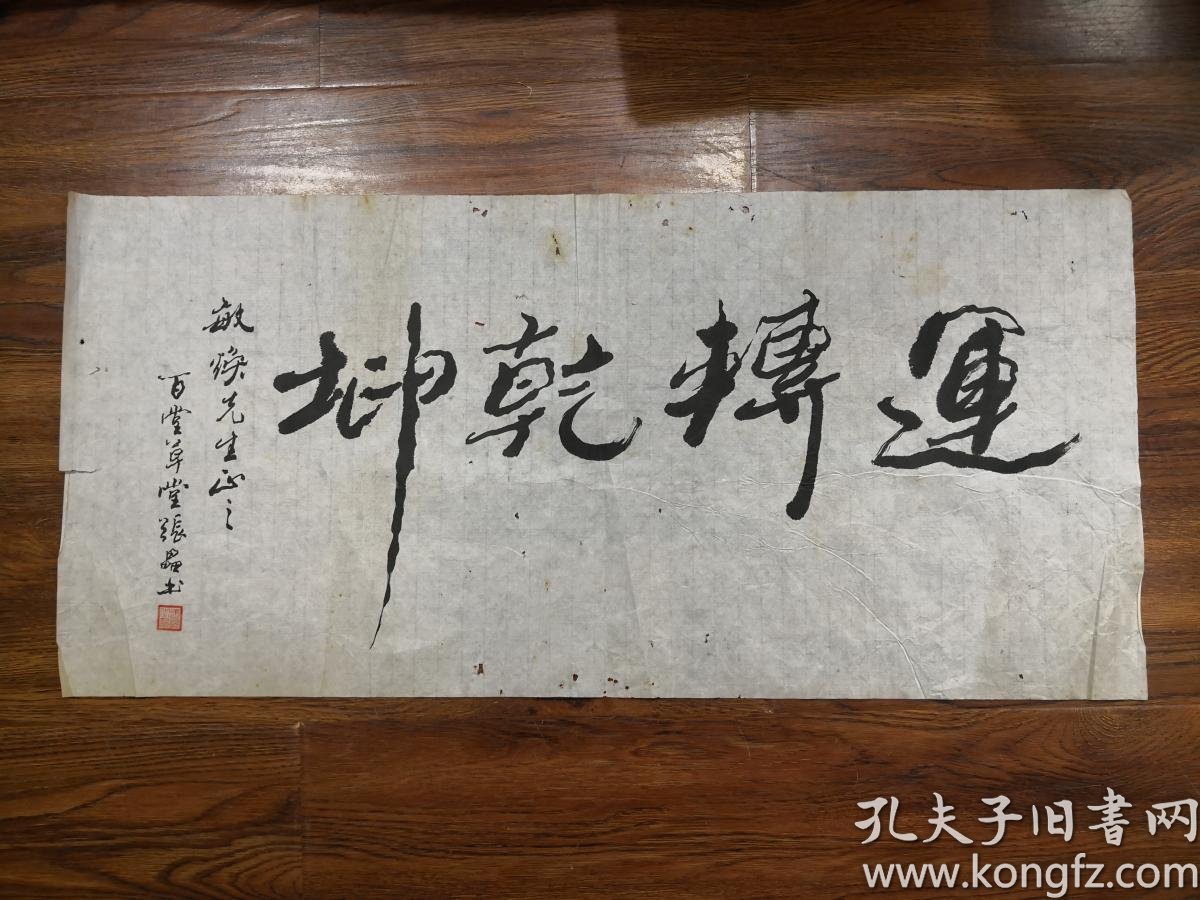 運轉乾坤
敏焕先生正之
百堂草堂張書
孔夫子旧書网
www.kongfz.com